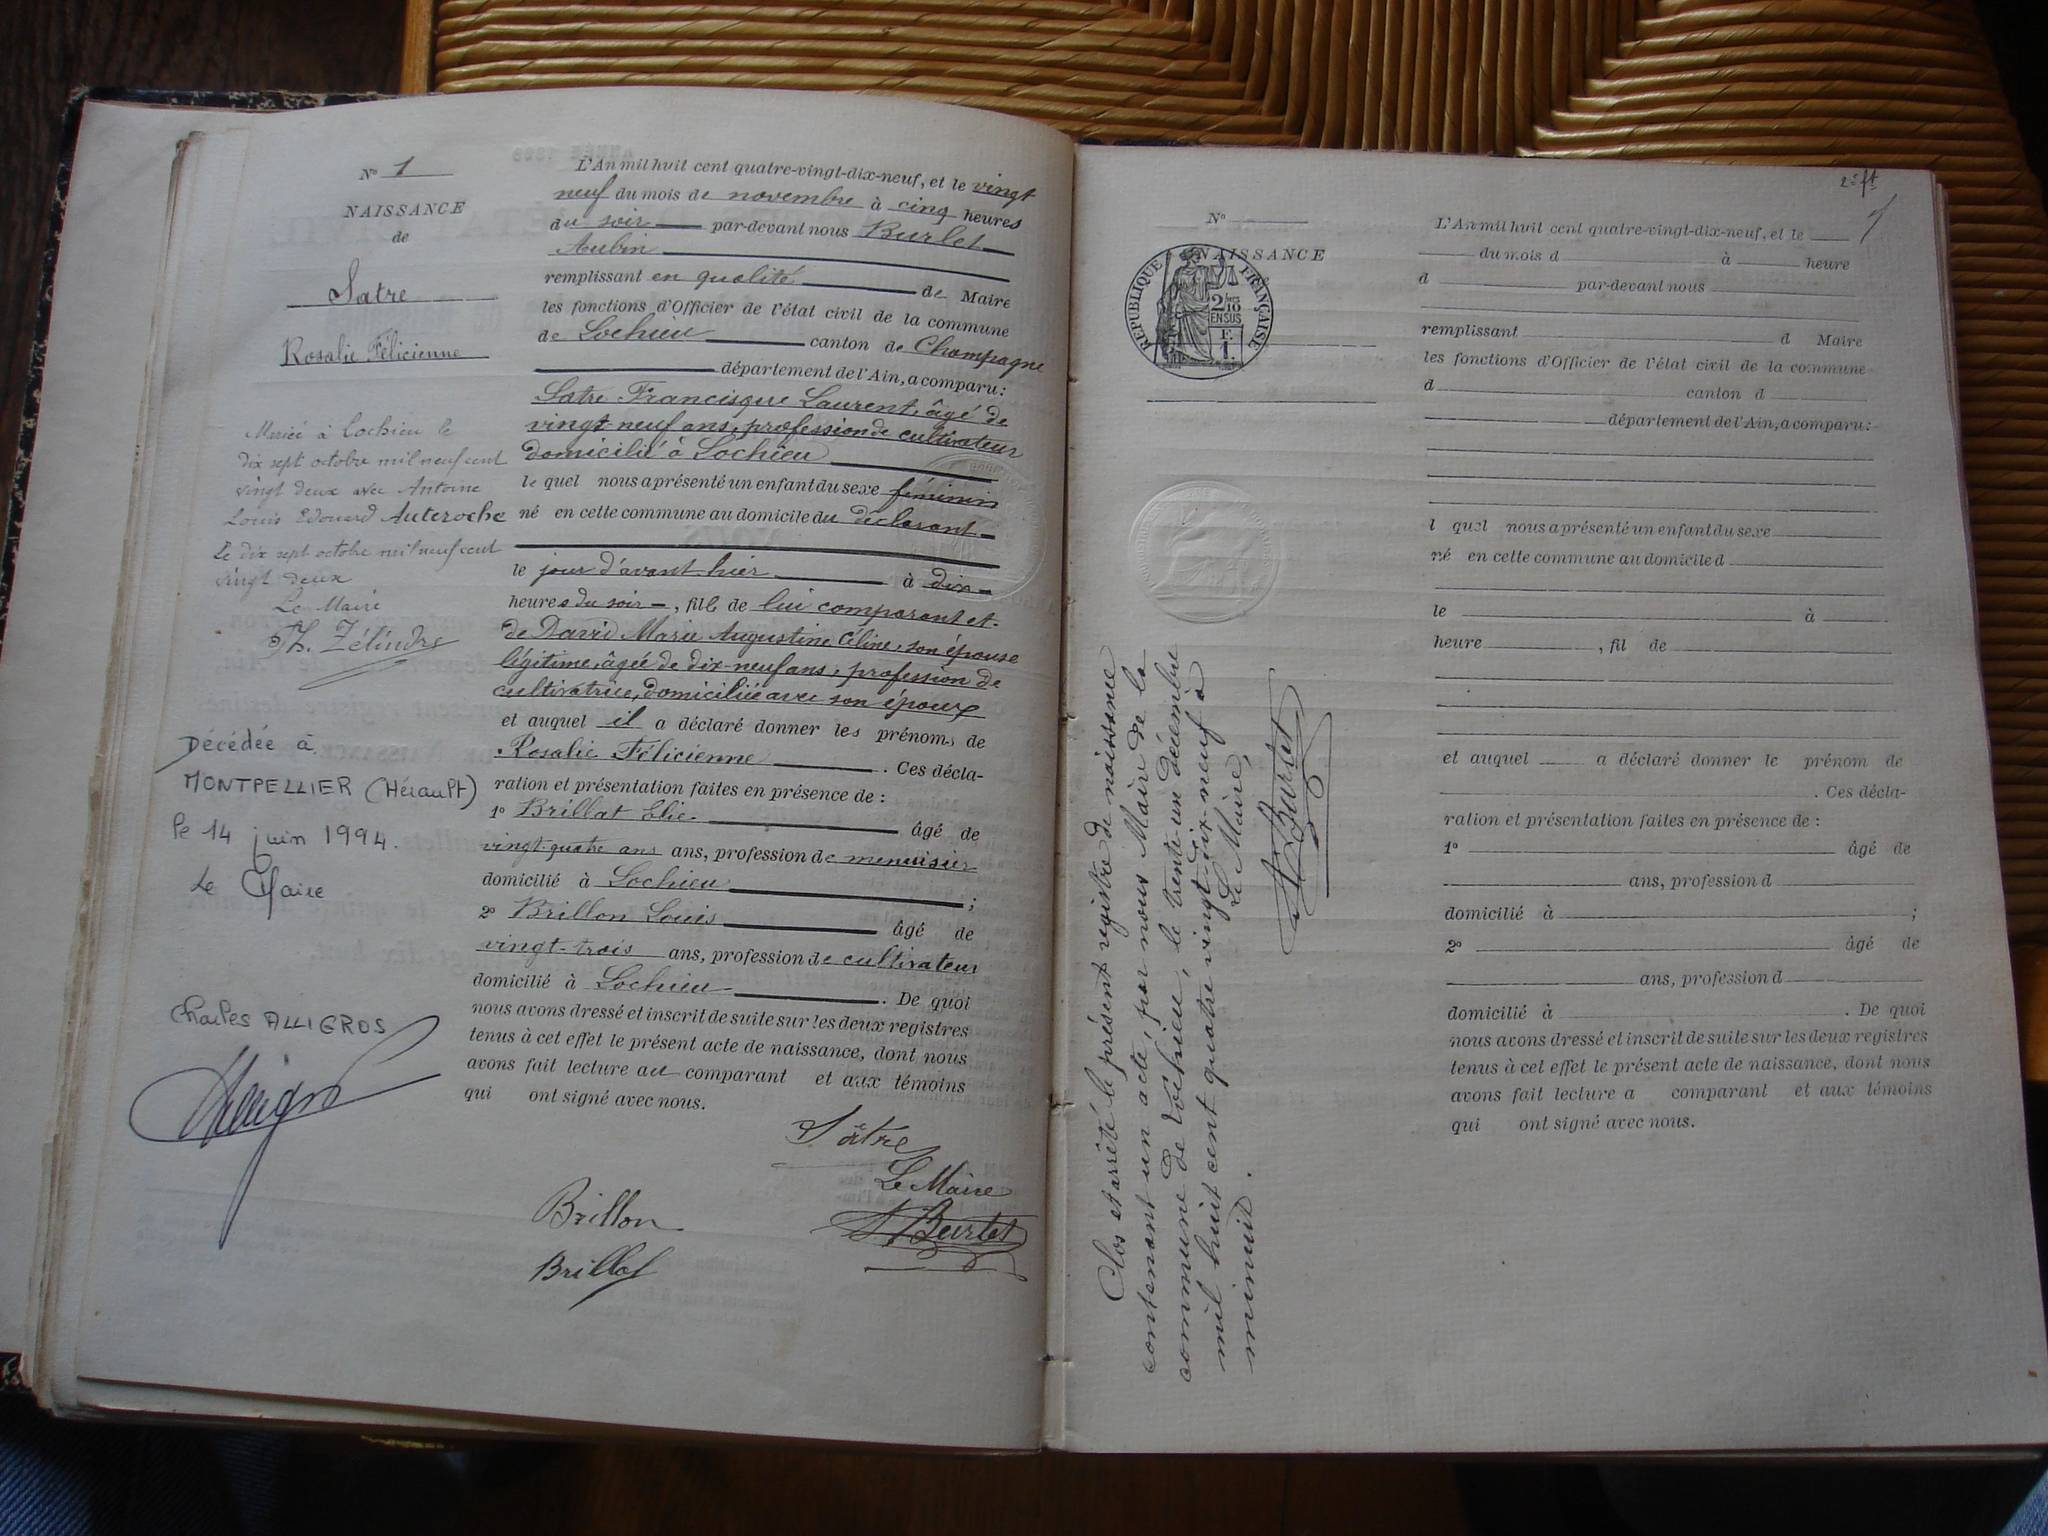 Nº 1
NAISSANCE
de
Satre
Rosalie Félicienne
Mariée à Lochieu le
dix sept octobre mil neuf cent
vingt deux avec Antoine
Louis Edouard Auteroche
Le dix sept octobre mil neuf cent
vingt deux
Le Maire
Décédée à
MONTPELLIER (Hérault)
le 14 juin 1994.
Le Maire
Charles ALLIGROS
L'An mil huit cent quatre-vingt-dix-neuf, et le vingt
neuf du mois de novembre à cinq heures
du soir par-devant nous Burlet
Aubin
remplissant en qualité de Maire
les fonctions d'Officier de l'état civil de la commune
de Lochieu canton de Champagne
département de l'Ain, a comparu :
Satre Francisque Laurent, âgé de
vingt neuf ans, profession de cultivateur
domicilié à Lochieu
le quel nous a présenté un enfant du sexe féminin
né en cette commune au domicile du déclarant
le jour d'avant hier à dix
heures du soir, fille de lui comparant et
de David Marie Augustine Céline, son épouse
légitime, âgée de dix-neuf ans, profession de
cultivatrice, domiciliée avec son époux
et auquel il a déclaré donner les prénoms de
Rosalie Félicienne . Ces décla-
ration et présentation faites en présence de :
1º Brillat Elie âgé de
vingt-quatre ans ans, profession de menuisier
domicilié à Lochieu ;
2º Brillon Louis âgé de
vingt-trois ans, profession de cultivateur
domicilié à Lochieu . De quoi
nous avons dressé et inscrit de suite sur les deux registres
tenus à cet effet le présent acte de naissance, dont nous
avons fait lecture au comparant et aux témoins
qui ont signé avec nous.
Satre
Le Maire
A Burlet
Brillon
Brillat
2e ft
Nº
NAISSANCE
REPUBLIQUE FRANÇAISE
2/10 EN SUS
F.
1.
L'An mil huit cent quatre-vingt-dix-neuf, et le
du mois d à heure
d par-devant nous
remplissant d Maire
les fonctions d'Officier de l'état civil de la commune
d canton d
département de l'Ain, a comparu :
l quel nous a présenté un enfant du sexe
né en cette commune au domicile d
le à
heure , fil de
et auquel a déclaré donner le prénom de
. Ces décla-
ration et présentation faites en présence de :
1º âgé de
ans, profession d
domicilié à ;
2º âgé de
ans, profession d
domicilié à . De quoi
nous avons dressé et inscrit de suite sur les deux registres
tenus à cet effet le présent acte de naissance, dont nous
avons fait lecture a comparant et aux témoins
qui ont signé avec nous.
Clos et arrêté le présent registre de naissance
contenant un acte, par nous Maire de la
commune de Lochieu, le trente-un décembre
mil huit cent quatre vingt-dix-neuf à
minuit.
Le Maire,
A Burlet